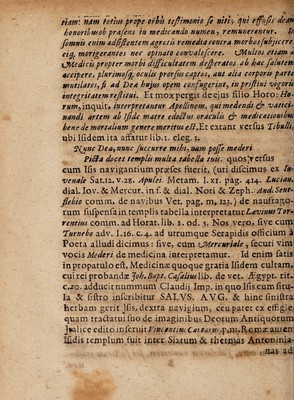 tiam: nam totius propè orbis testimonio se niti, qui effusis deam
honoribus ob præsens in medicando numen, remunerentur. In
somnis enim adsistentem ægris remedia contra morbos subjicere
eiq, morigerantes nec opinatò convalescere. Multos etiam à
Medicis propter morbi difficultatem desperatos ab hac salutem
accipere, plurimosq, oculis prorsus captos, aut alia corporis parte
mutilatos, si ad Deæ hujus opem confugerint, in pristini vigoris
integritatem restitui. Et mox pergit de ejus filio Horo: Ho-
rum, inquit, interpretantur Apollinem, qui medendi & vatici-
nandi artem ab Iside matre edoctus oraculis & medicationibus
bene de mortalium genere meritus est. Et extant versus Tibulli,
ubi Isidem ita affatur lib. I. eleg. 3.
Nunc Dea, nunc succurre mihi, nam posse mederi
Picta docet templis multa tabella tuis. quos, versus
cum Isis navigantium præses fuerit, (uti discimus ex Ju-
venale Sat. 12. v. 28. Apulei. Metam. l. XI. pag. 414. Lucian.
dial. Jov. & Mercur. in f. & dial. Noti & Zeph. And. Senf-
tlebio comm. de navibus Vet. pag. m, 123.) de naufrago-
rum suspensa in templis tabella interpretatur Lævinus Tor-
rentius comm. ad Horat. lib. I. od. 5. Nos verò, sive cum
Turnebo adv. l. 16. c. 4. ad utrumque Serapidis officium à
Poeta alludi dicimus: sive, cum Mercuriale, securi vim
vocis Mederi de medicina interpretamur. Id enim satis
in propatulo est, Medicinæ quoque gratia Isidem cultam,
cui rei probandæ Joh. Bapt. Casalius lib. de vet. Ægypt. rit.
c. 20. adducit nummum Claudij Imp. in quo Isis cum situ-
la & sistro inscribitur SALVS. AVG. & hinc sinistra
herbam gerit Isis, dextra navigium, ceu patet ex effigie,
quam tradit at suo de imaginibus Deorum Antiquorum
Italicè edito inseruit Vincentius Cartarus p.m. Romæ autem
Isidis templum fuit inter Sixtum & thermas Antoninia-
nas ad